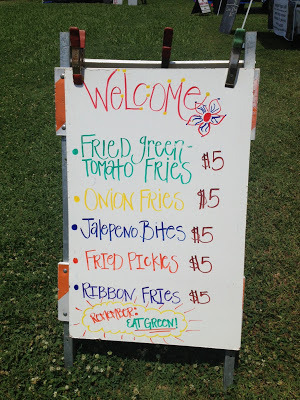 Welcome
Fried green-
Tomato Fries $5
Onion Fries $5
Jalapeno Bites $5
Fried Pickles $5
Ribbon Fries $5
Remember:
Eat Green!